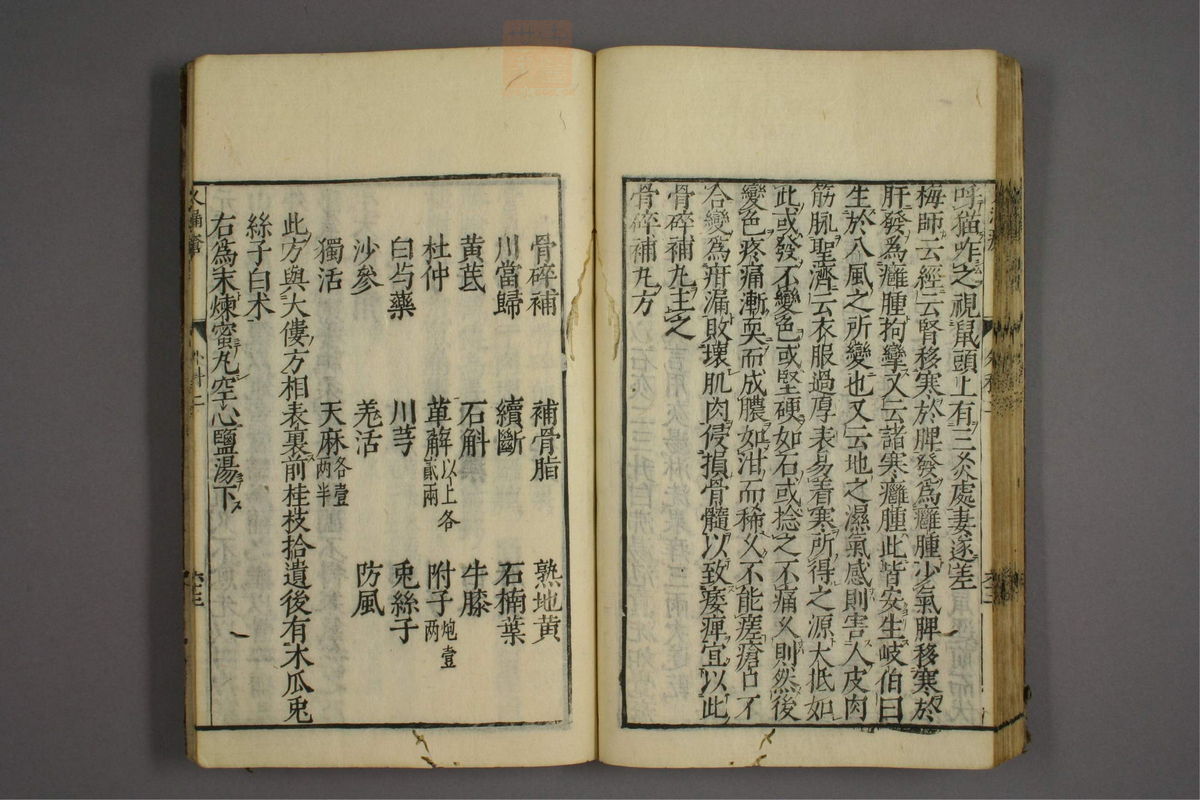 呼猫咋之視鼠頭上有三灸處妻遂差
梅師云經云腎移寒於脾發爲癰腫少氣脾移寒於
肝發爲癰腫拘攣又云諸寒癰腫此皆安生岐伯曰
生於八風之所變也又云地之濕氣感則害人皮肉
筋脉聖濟云衣服過厚表易着寒所得之源大抵如
此或發不變色或堅硬如石或捻之不痛乂則然後
變色疼痛漸耎而成膿如泔而稀乂不能瘥瘡口不
合變爲疳漏敗壞肌肉侵損骨髓以致痿痺宜以此
骨碎補丸主之
骨碎補丸方
骨碎補 補骨脂 熟地黄
川當歸 續斷 石楠葉
黄茋 石斛 牛膝
杜仲 萆薢以上各貳兩 附子炮壹兩
白芍藥 川芎 兎絲子
沙參 羗活 防風
獨活 天麻各壹兩半
此方與大僂方相表裏前桂枝拾遺後有木瓜兎
絲子白术
右爲末煉蜜丸空心鹽湯下